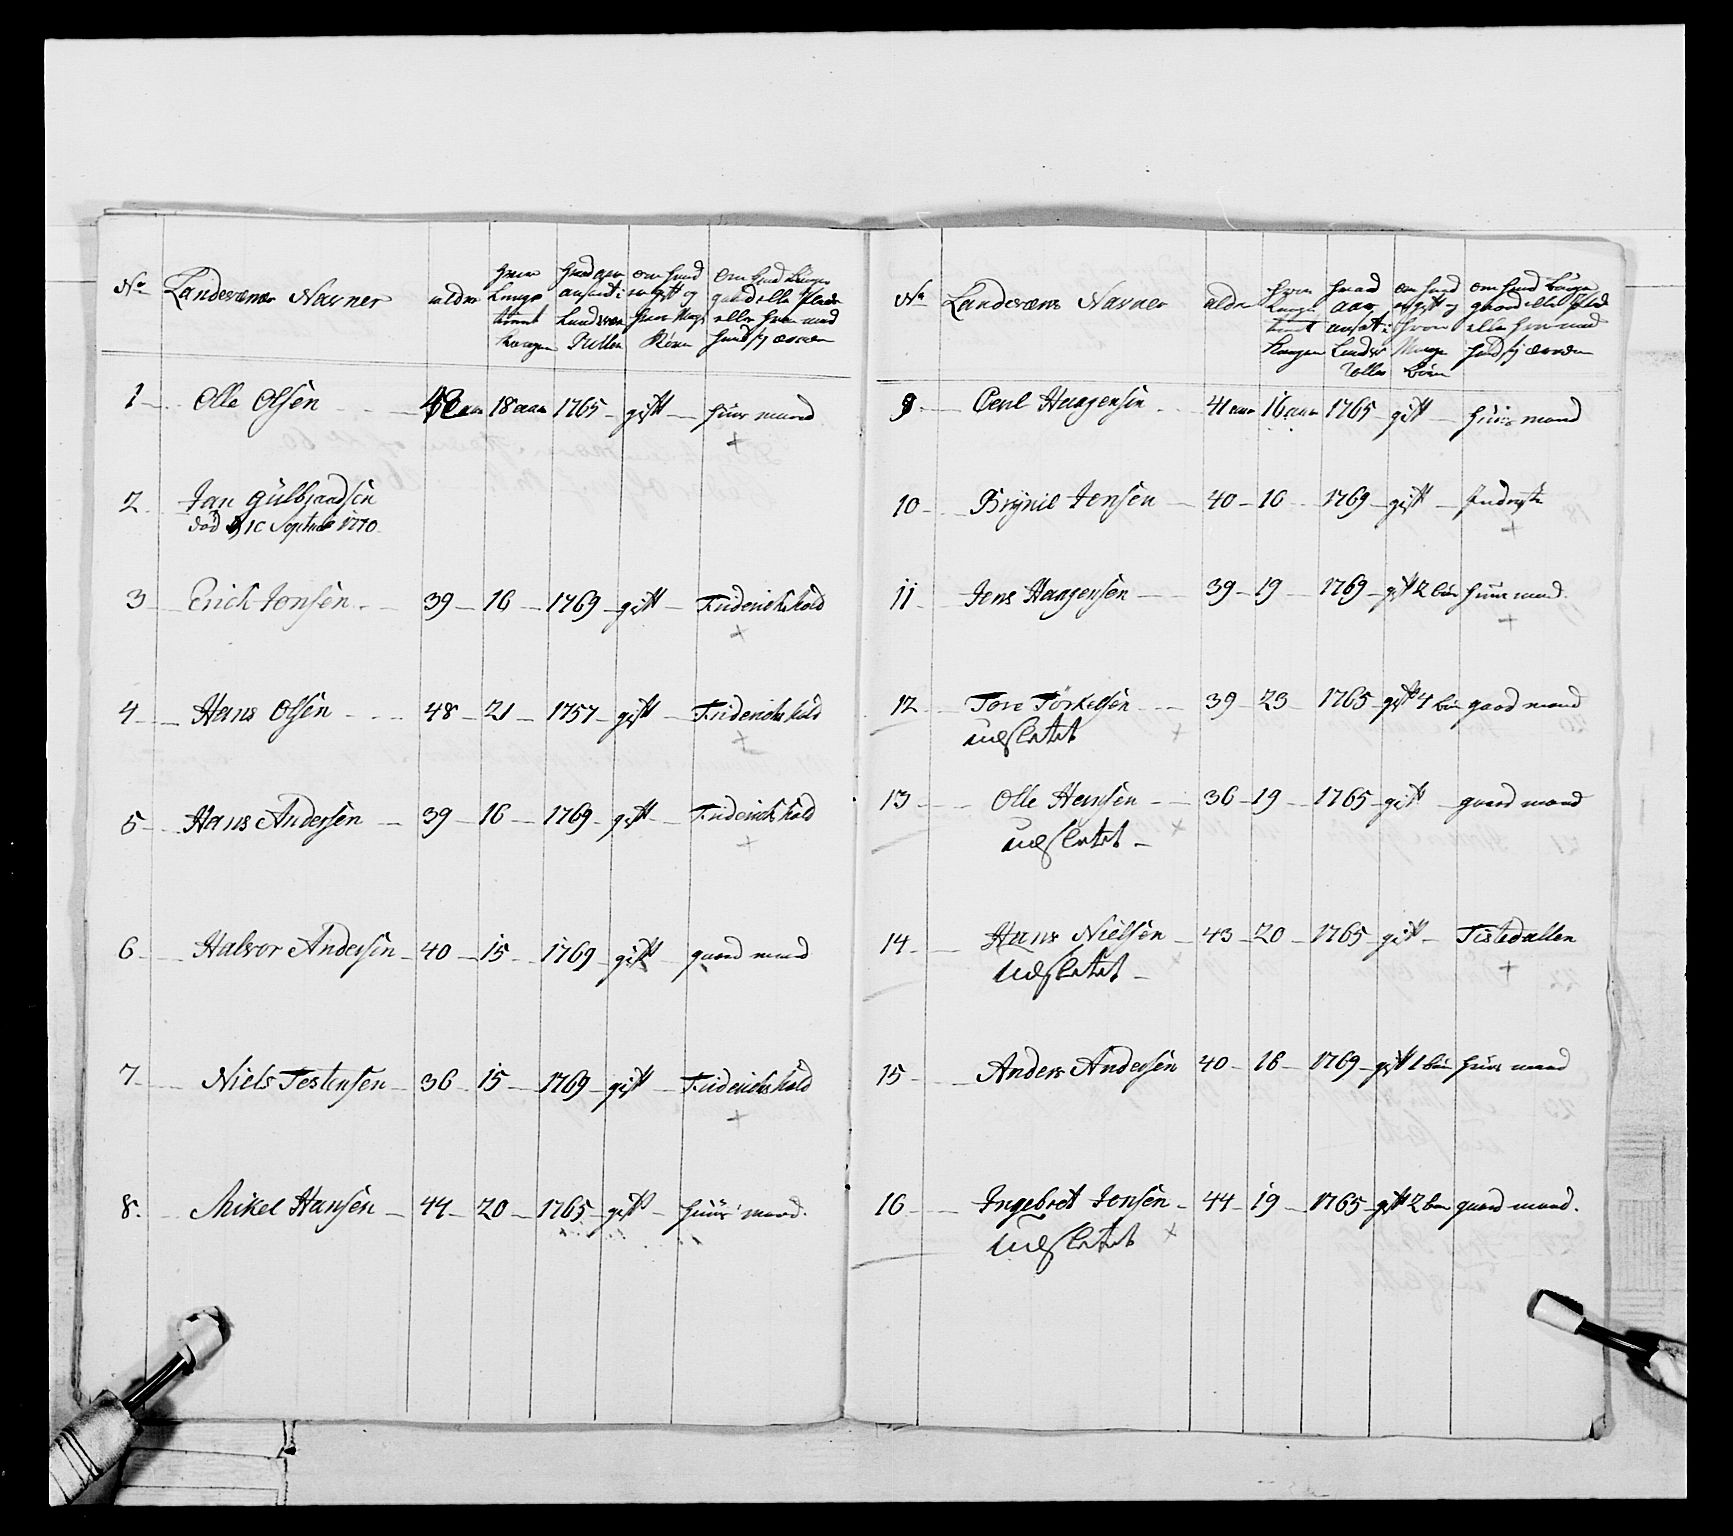 No Landeværns Navner alder hvor Lenge tient Kongen hvad aar ansat i Landvær Rullen om hand er gift og hvor Mange Börn om hand bruger gaard eller Plads eller hvor med hand sig ernærer
1 Olle Olsen 48 aar 18 aar 1765 gift huus mand
2 Jan Gulbrandsen
död d 10 Septebr 1770
3 Erich Jonsen 39 16 1769 gift Friderichshald
4 Hans Olsen 48 21 1757 gift Friderichshald
5 Hans Andersen 39 16 1769 gift Friderichshald
6 Halvor Andersen 40 15 1769 gift gaard mand
7 Niels Testensen 36 15 1769 gift Friderichshald
8 Mikel Hansen 44 20 1765 gift huus mand
No Landeværns Navner alder hvor Lenge tient Kongen hvad aar ansat i Landvær Rolle om hand er gift og hvor Mange börn om hand bruger gaard eller Plads eller hvor med hand sig ernærer
9 Povel Haagensen 41 aar 16 aar 1765 gift huus mand
10 Brynil Jensen 40 16 1769 gift Inderste
11 Jens Haagensen 39 19 1769 gift 2 bör huus mand
12 Tore Törkelsen 39 23 1765 gift 4 bör gaard mand
udslettet
13 Olle Hansen 36 19 1765 gift gaard mand
udslettet
14 Hans Nielsen 43 20 1765 gift Tistedallen
udslettet
15 Anders Andersen 40 16 1769 gift 1 bör huus mand
16 Ingebret Jonsen 44 19 1765 gift 2 bör gaard mand
udslettet